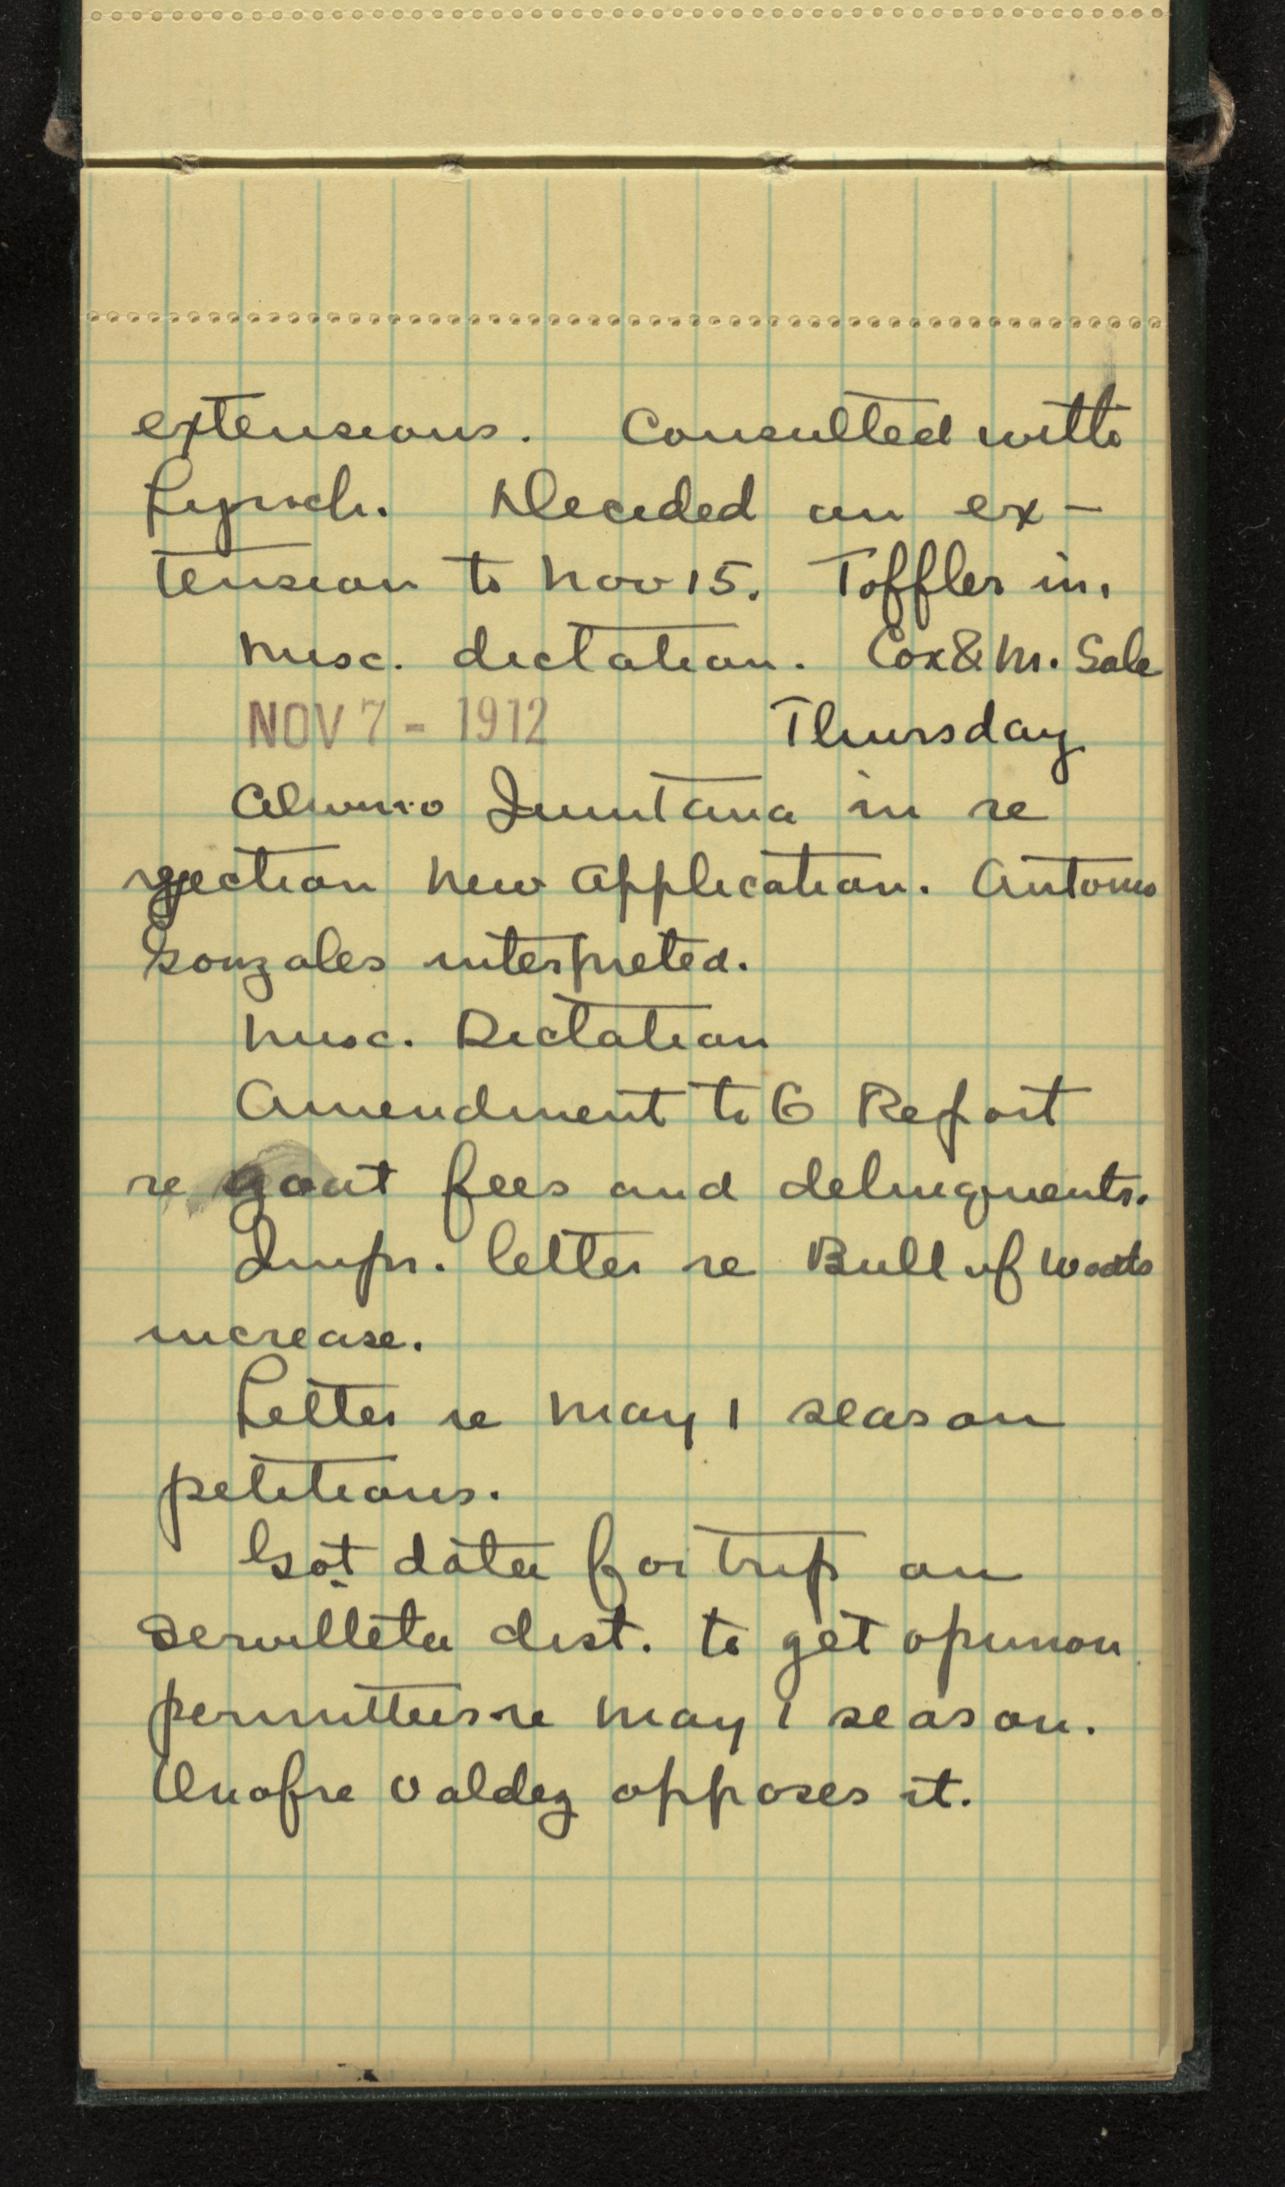 extensions. Consulted with
Lynch. Decided on ex-
tension to Nov 15. Toffler in.
Misc. dictation. Cox & M. Sale
NOV 7 - 1912 Thursday
Quintana in re
rejection new application. Antonio
Gonzales interpreted.
Misc. Dictation
Amendment to G Report
re goat fees and delinquents.
Impr. letter re Bull of Woods
increase.
Letter re May 1 season
petitions.
Got data for trip on
Servilleta dist. to get opinion
permittees re May 1 season.
Onofre Valdez opposes it.